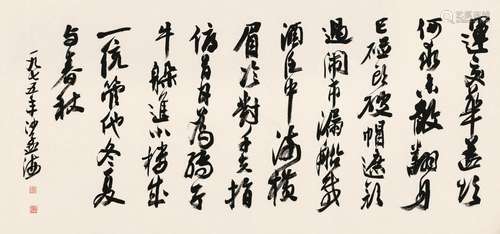 運交華蓋欲
何求未敢翻身
已碰頭破帽遮顏
過鬧市漏船載
酒泛中流橫
眉冷對千夫指
俯首甘為孺子
牛躲進小樓成
一統管他冬夏
与春秋
一九七五年沙孟海